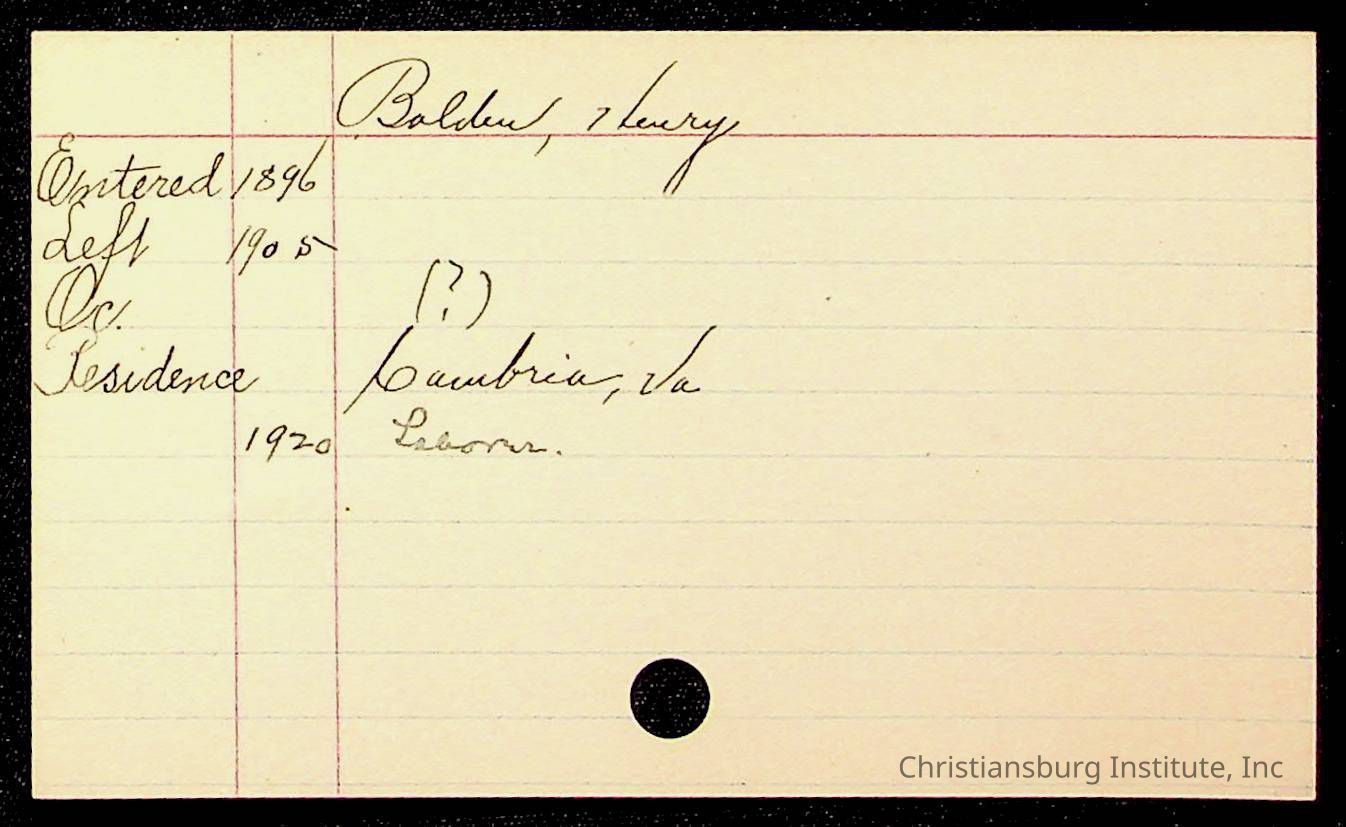 Bolden, Henry
Entered 1896
Left 1905
Oc. (?)
Residence Cambria, Va
1920 Laborer.
Christiansburg Institute, Inc